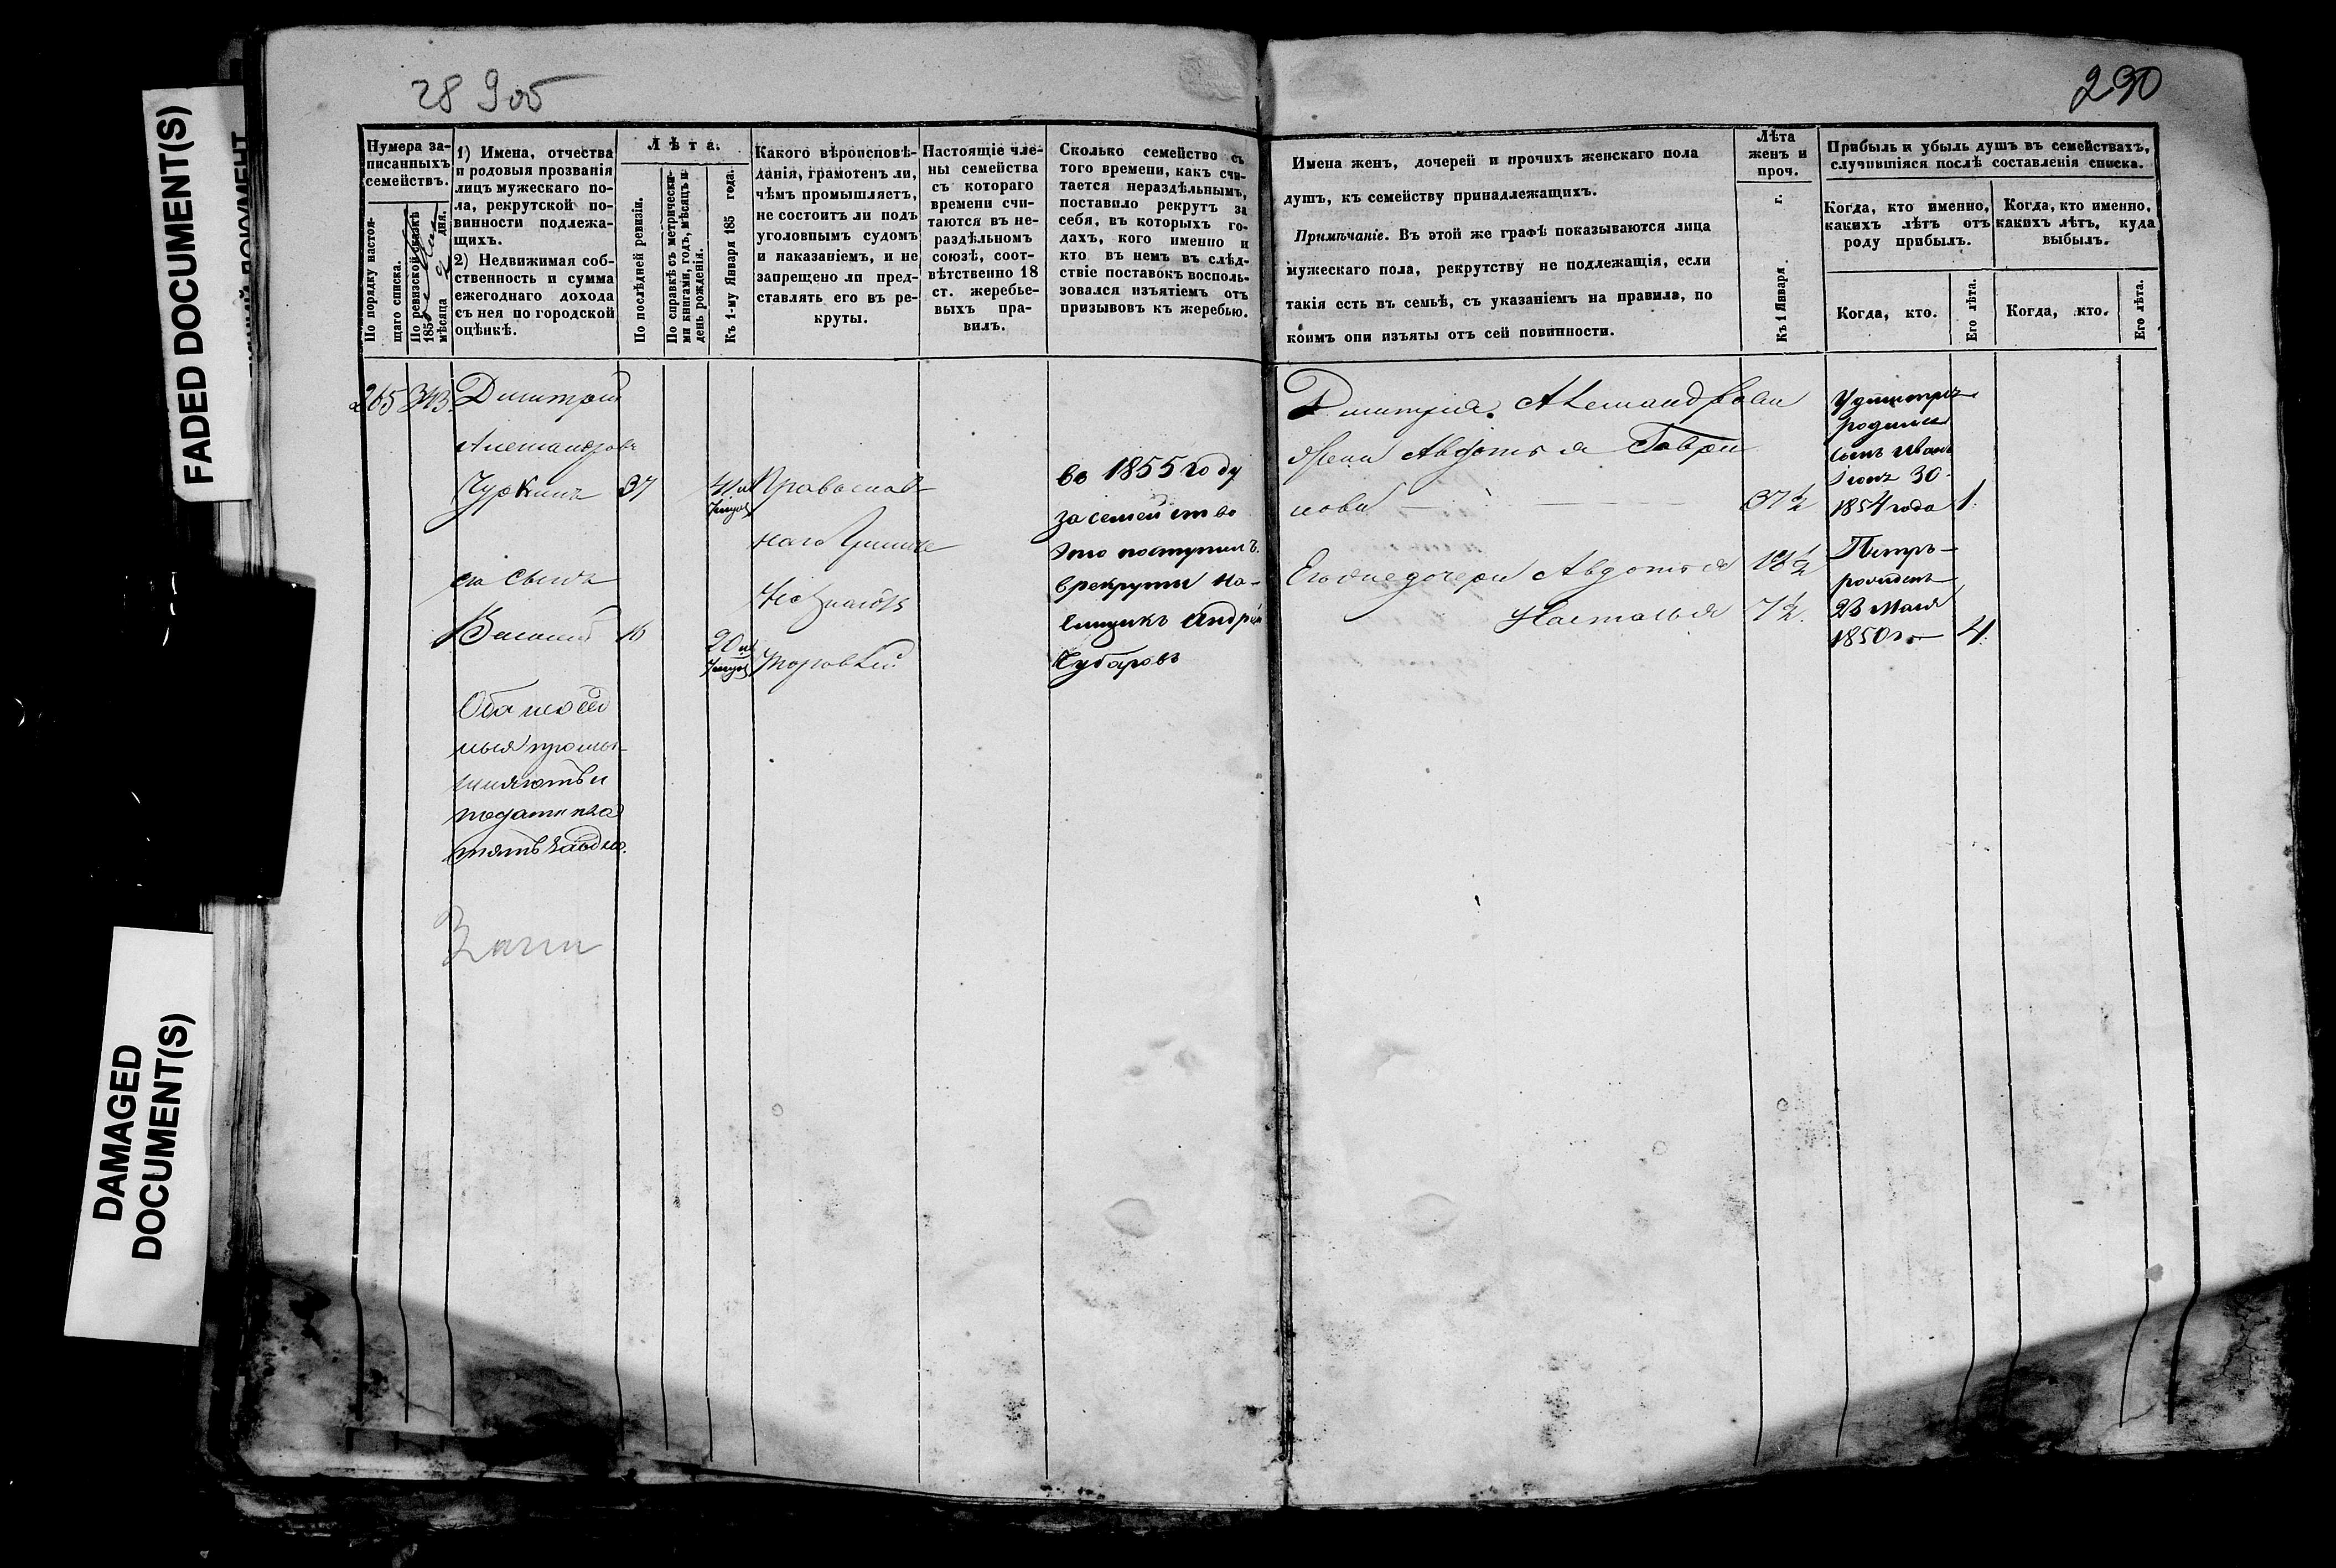 FADED DOCUMENT(S)
DAMAGED
DOCUMENT(S)
28 905
290
Нумера за-
писанныхъ
семействъ.
По порядку настоя-
щаго списка.
По ревизской сказкѣ
185
мѣсяца 2 дня.
1) Имена, отчества
и родовыя прозванія
лицъ мужескаго по-
ла, рекрутской по-
винности подлежа-
щихъ.
2) Недвижимая соб-
ственность и сумма
ежегоднаго дохода
съ нея по городской
оцѣнкѣ.
Лѣта.
По послѣдней ревизіи.
По справкѣ съ метрически-
ми книгами, годъ, мѣсяцъ и
день рожденія.
Къ 1-му Января 185 года.
Какого вѣроисповѣ-
данія, грамотенъ ли,
чѣмъ промышляетъ,
не состоитъ ли подъ
уголовнымъ судомъ
и наказаніемъ, и не
запрещено ли пред-
ставлять его въ ре-
круты.
Настоящіе чле-
ны семейства
съ котораго
времени счи-
таются въ не-
раздѣльномъ
союзѣ, соот-
вѣтственно 18
ст. жеребье-
выхъ пра-
вилъ.
Сколько семейство съ
того времени, какъ счи-
тается нераздѣльнымъ,
поставило рекрутъ за
себя, въ которыхъ го-
дахъ, кого именно и
кто въ немъ въ слѣд-
ствіе поставокъ восполь-
зовался изъятіемъ отъ
призывовъ къ жеребью.
Имена женъ, дочерей и прочихъ женскаго пола
душъ, къ семейству принадлежащихъ.
Примѣчаніе. Въ этой же графѣ показываются лица
мужескаго пола, рекрутству не подлежащія, если
такія есть въ семьѣ, съ указаніемъ на правила, по
коимъ они изъяты отъ сей повинности.
Лѣта
женъ и
проч.
Къ 1 Января г.
Прибыль и убыль душъ въ семействахъ,
случившіяся послѣ составленія списка.
Когда, кто именно,
какихъ лѣтъ отъ
роду прибылъ.
Когда, кто именно,
какихъ лѣтъ, куда
выбылъ.
Когда, кто.
Его лѣта.
Когда, кто.
Его лѣта.
265 343 Дмитрий
Александровъ
Чуркинъ 37
его сынъ
Василий 16
20
41
Православ-
наго
Торговлей
во 1855 году
за семейство
это поступилъ
в рекруты на-
емщикъ Андрей
Чубаровъ
Дмитрия Александрова
жена Авдотья Гаври
лова 37 1/2
Его две дочери Авдотья
Наталья 7 1/2
У Дмитрия
родился
сынъ Иванъ
30
1854 года 1.
Петръ
родился
23 Мая
1850 го 4.